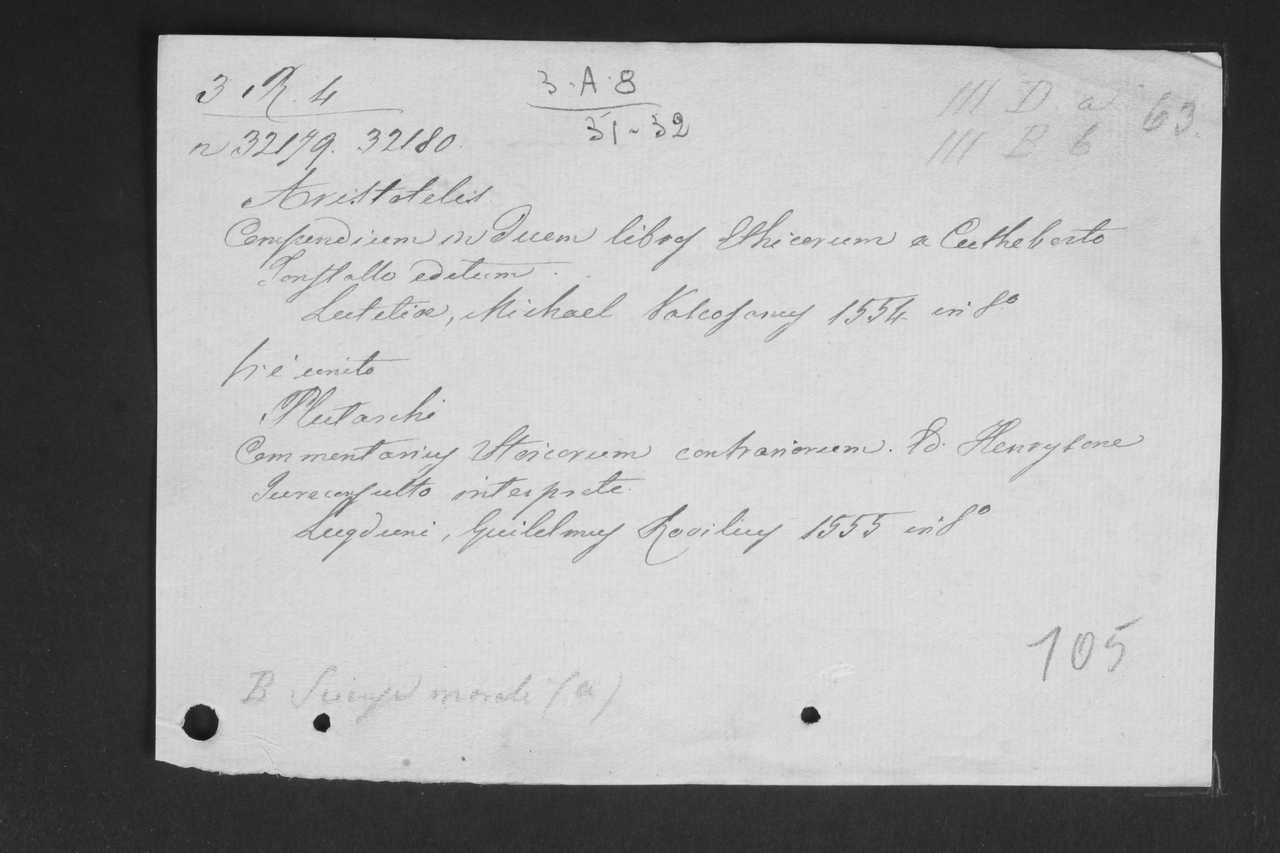 3. R. 4
3. A. 8
51-52
III D. a
III B b
63.
n 32179. 32180.
Aristotelis
Compendium in Duem libros Ethicorum a Cutheberto
Tonstallo editum.
Lutetiæ, Michael Vascosanus 1554 in 8º
Vi è unito
Plutarchi
Commentarius Stoicorum contrariorum. Ed. Henrysone
Jureconsulto interprete.
Lugduni, Guilelmus Rovilius 1555 in 8º
105
B Scienze morali (a)